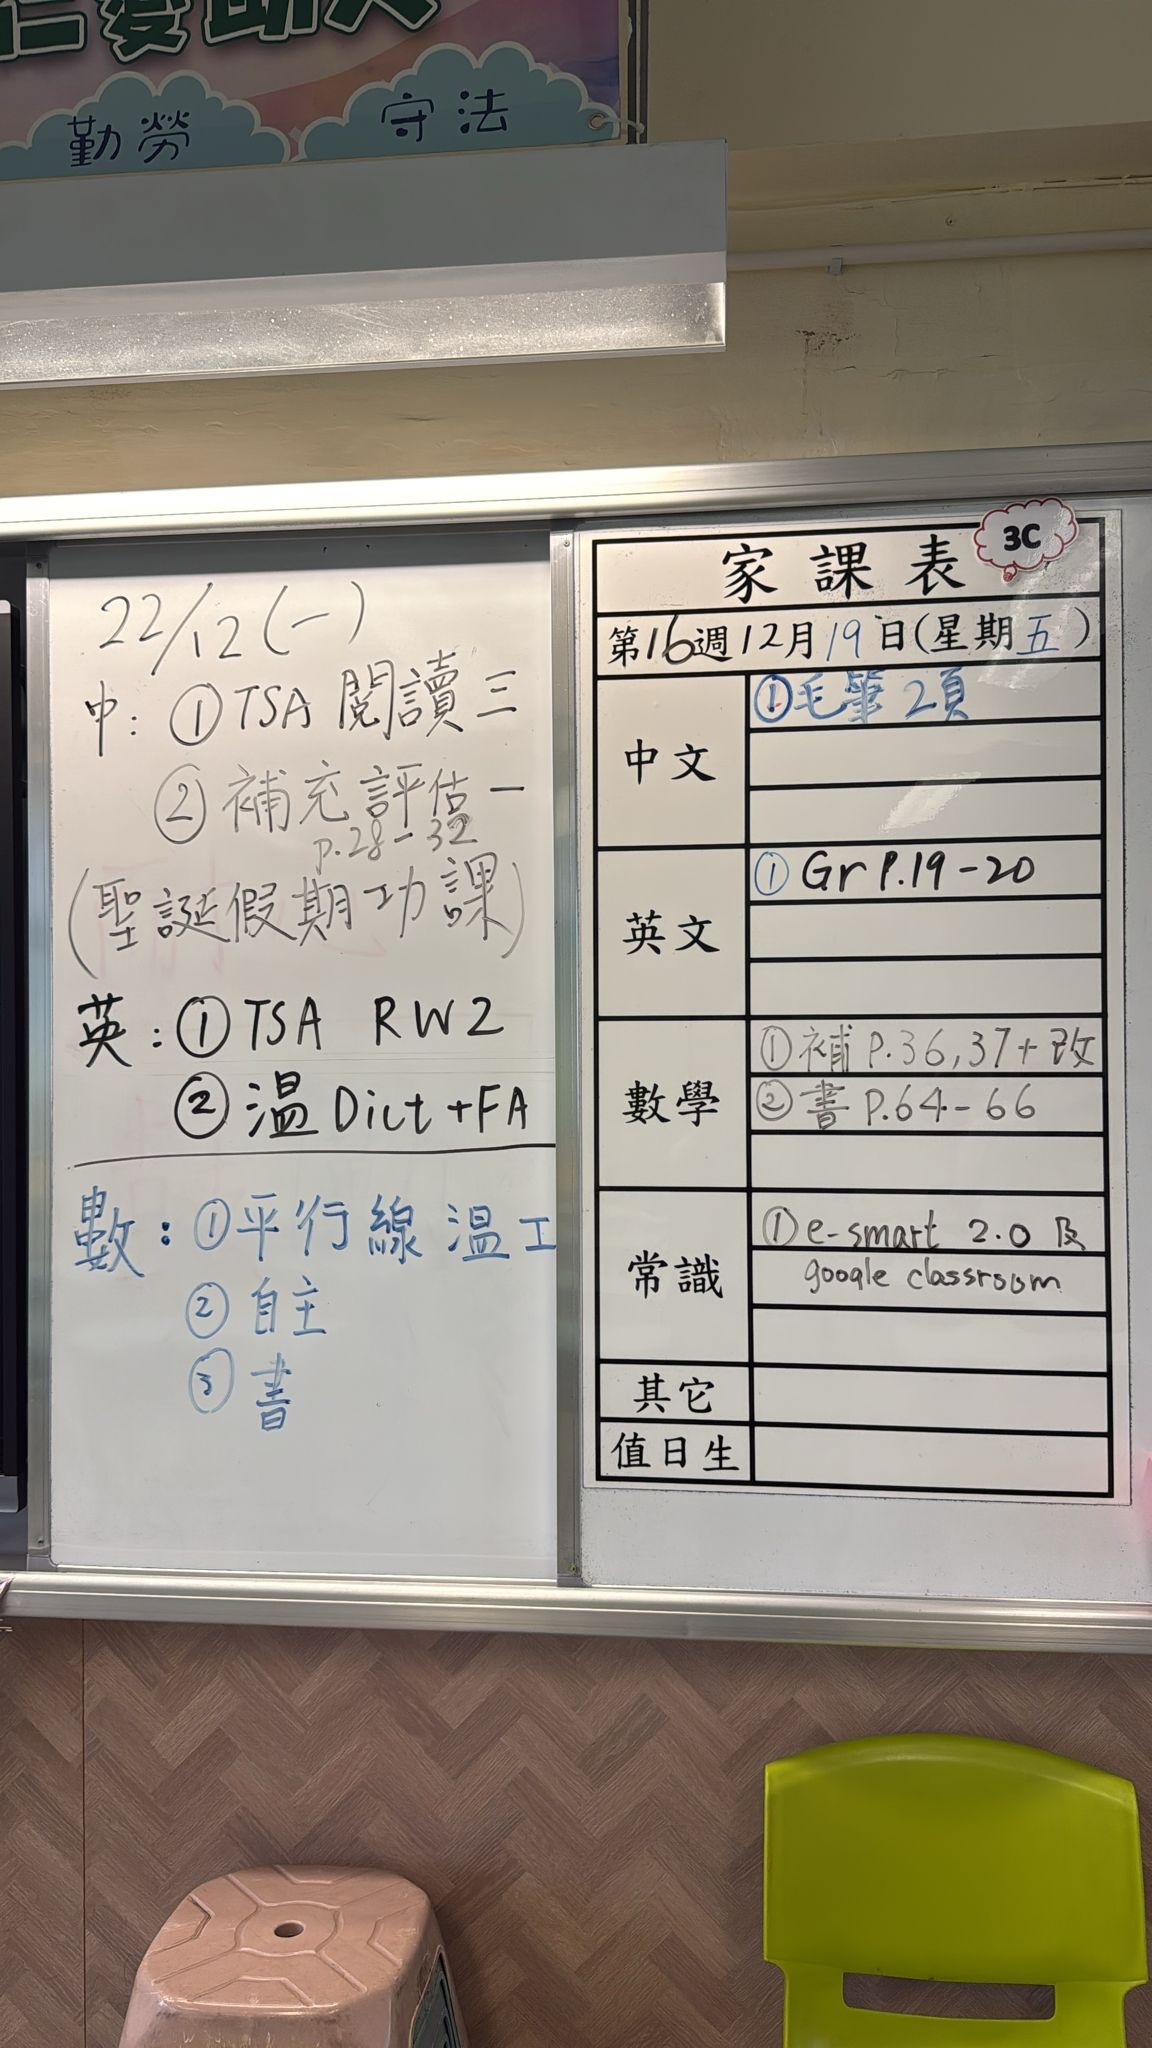 仁愛助人
勤勞
守法
22/12(一)
中: ①TSA 閱讀三
②補充評估一
p.28-32
(聖誕假期功課)
英: ①TSA RW2
②溫Dict+FA
數: ①平行線溫工
②自主
③書
3C
家課表
第16週12月19日(星期五)
中文
①毛筆2頁
英文
①Gr P.19-20
數學
①補P.36,37+改
②書P.64-66
常識
①e-smart 2.0及
google classroom
其它
值日生